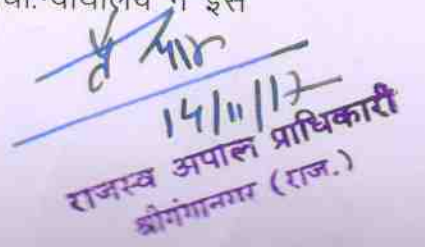 इस
14/11/17
राजस्व अपील प्राधिकारी
श्रीगंगानगर (राज.)